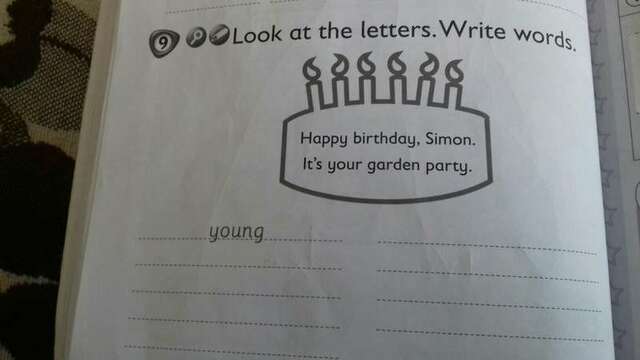 9 Look at the letters. Write words.
Happy birthday, Simon.
It's your garden party.
young